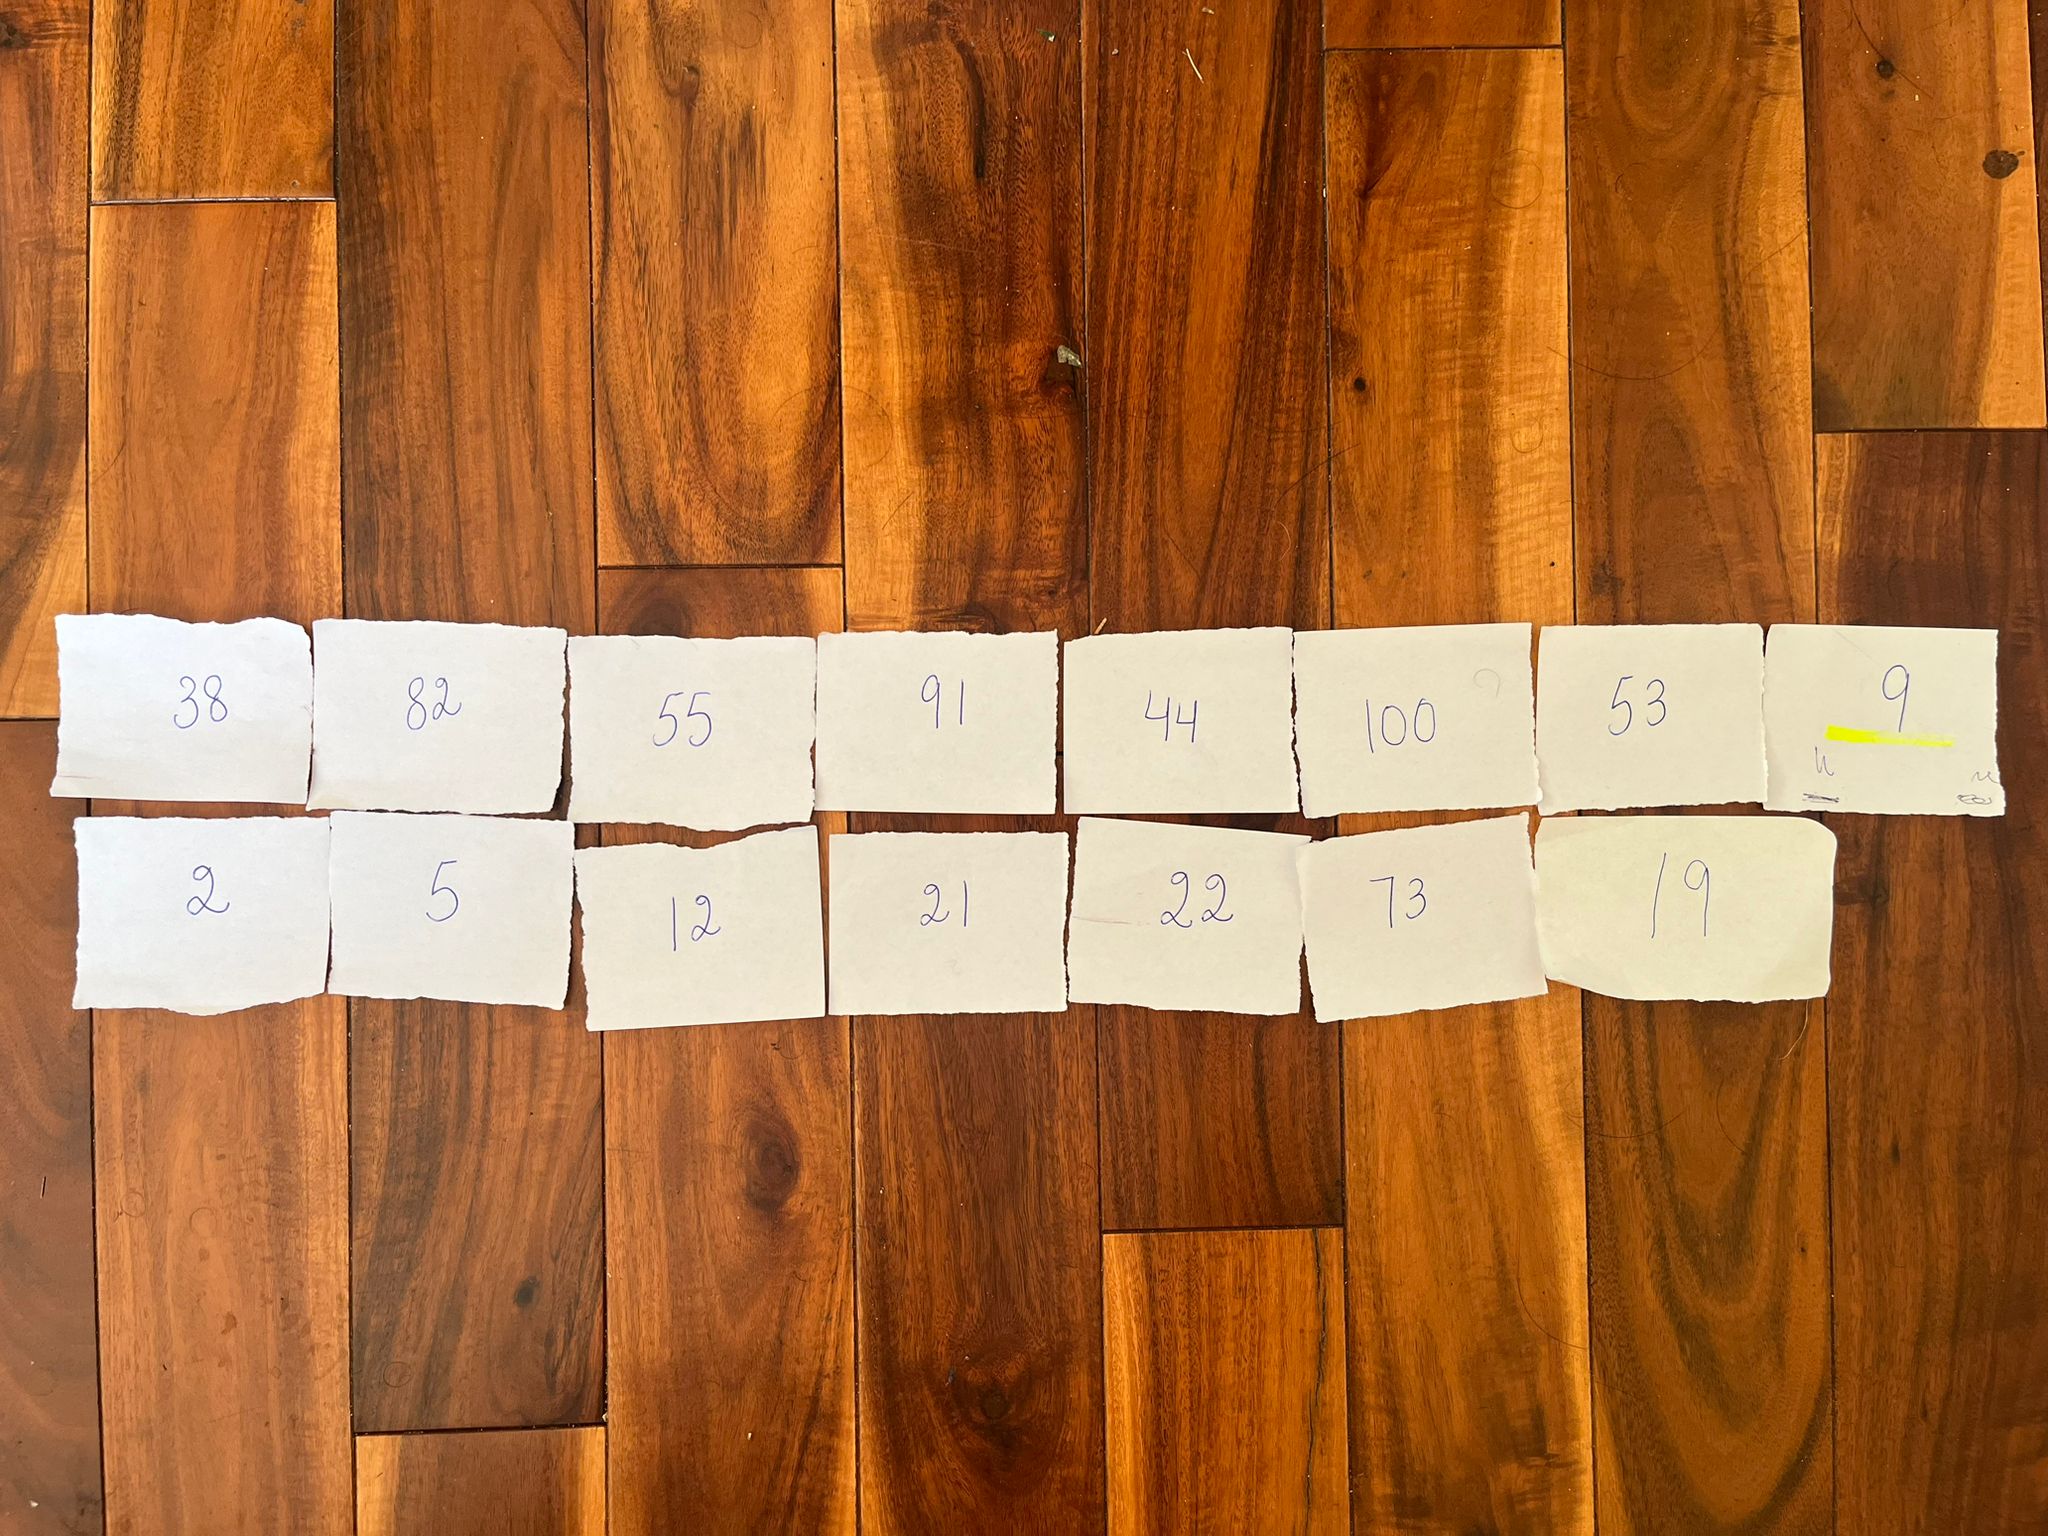 38 82 55 91 44 100 53 9
2 5 12 21 22 73 19